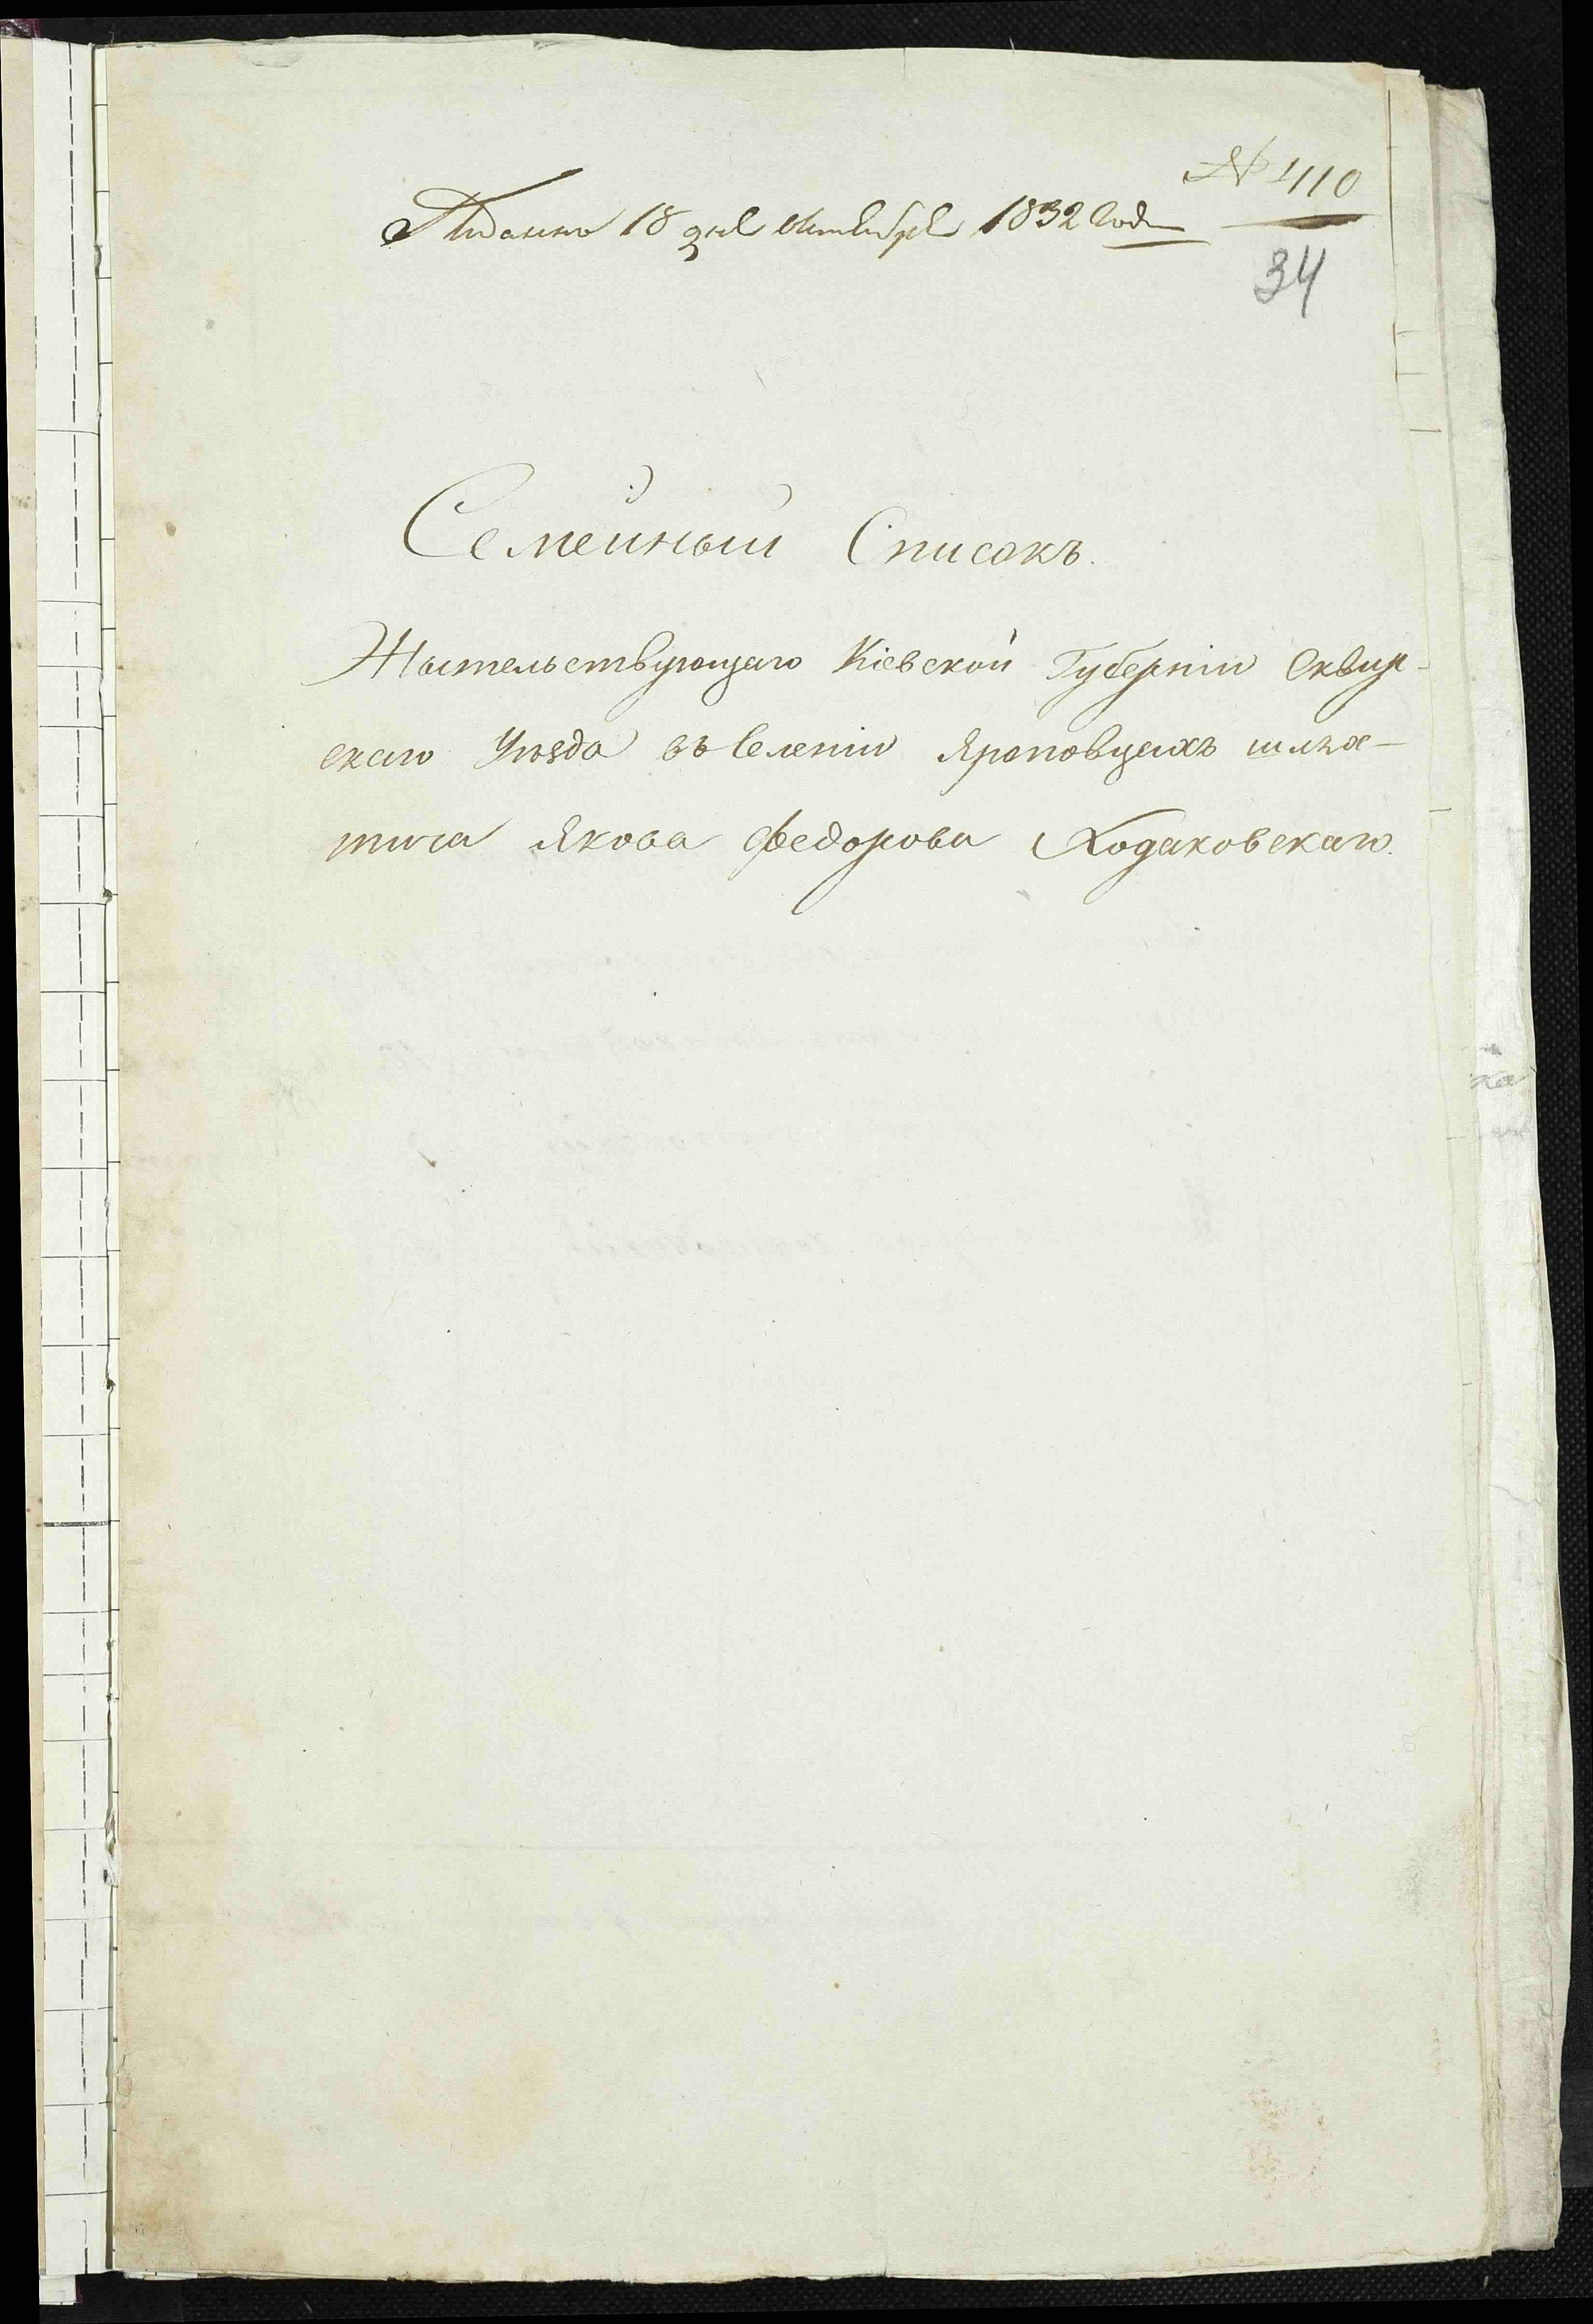 № 410
Подано 18 дня октября 1832 года
34
Семейный Списокъ.
Жытельствующаго Кіевской Губерніи Сквир-
скаго Уѣзда въ Селеніи Яроповцахъ шлях-
тича Якова Федорова Ходаковскаго.